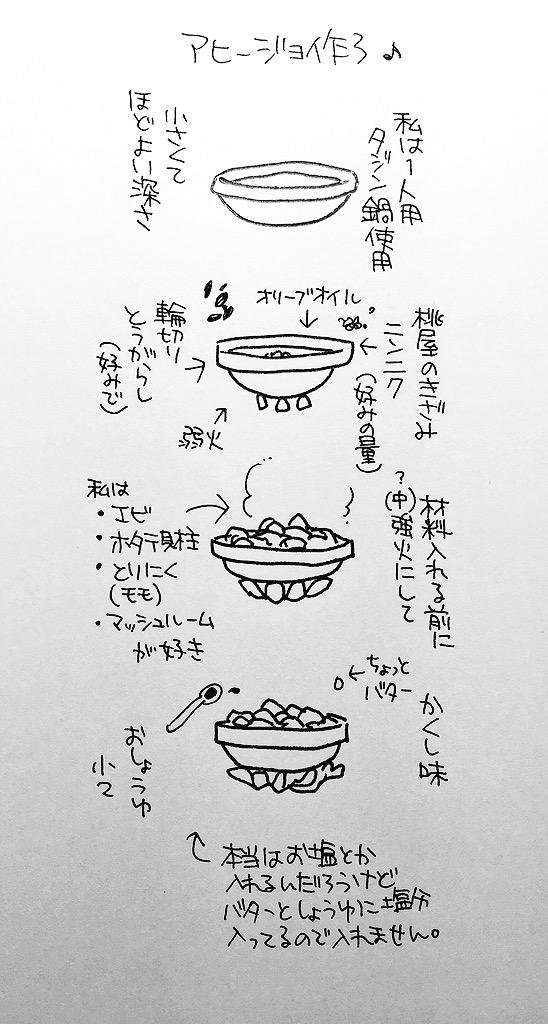 アヒージョ作ろ♪
私は1人用
タジン鍋使用
小さくて
ほどよい深さ
オリーブオイル
桃屋のきざみ
ニンニク
(好みの量)
輪切り
とうがらし
(好みで)
弱火
材料入れる前に
(中)強火にして
?
私は
・エビ
・ホタテ貝柱
・とりにく
(モモ)
・マッシュルーム
が好き
かくし味
ちょっと
バター
おしょうゆ
小1
本当はお塩とか
入れるんだろうけど
バターとしょうゆに塩分
入ってるので入れません。